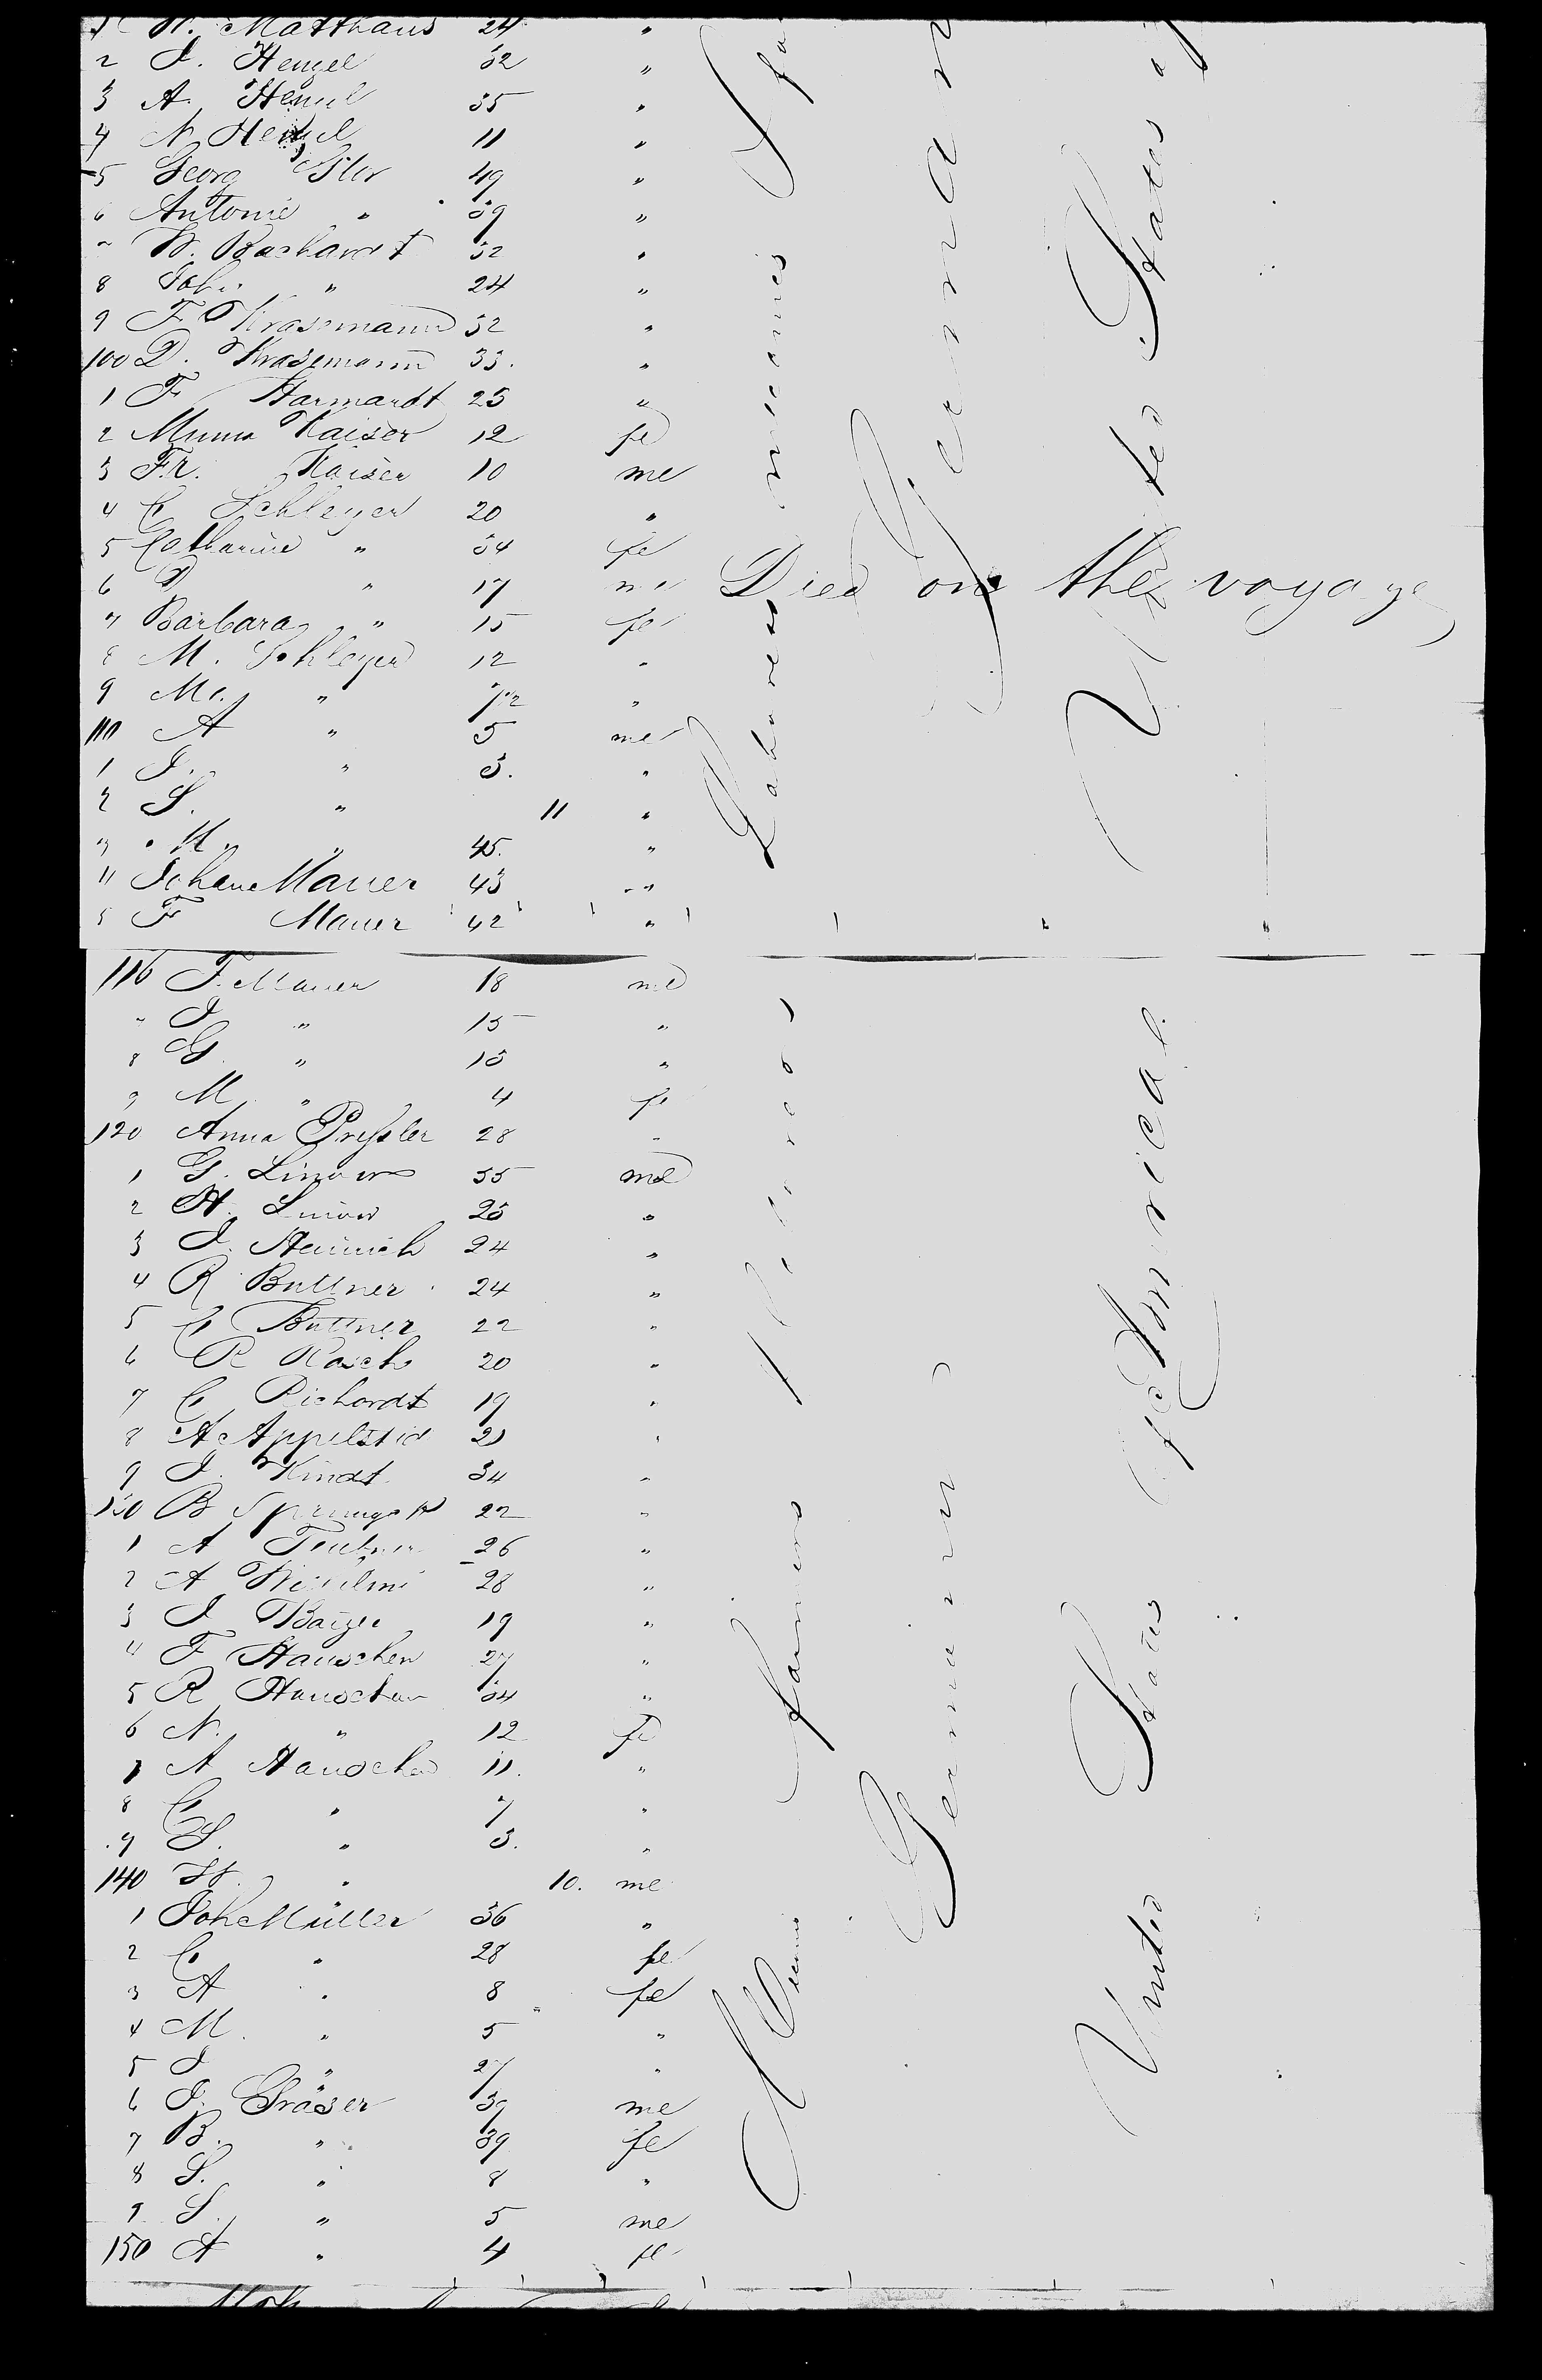 1 W. Matthaus 24 "
2 J. Hengel 32 "
3 A. Hengel 35 "
4 N. Hengel 11 "
5 Georg 49 "
6 Antonie " 39 "
W. Bachardt 32 "
8 Joh. " 24 "
9 F Krasemann 32 "
100 D. Krasemann 33. "
1 F Harmardt 25 "
2 Minna Kaiser 12 fe
3 Fr. Kaiser 10 me
4 C Schleyer 20 "
5 Catharine " 34 fe
6 " 17 me Died on the voyage
7 Barbara " 15 fe
8 M. Schleyer 12 "
9 Me. " 7 "
110 A " 5 me
1 J. " 3. "
2 S. " 11 "
3 M. " 45. "
Johann Mauer 43 "
5 F Mauer 42 "
Laborers mecanics
German
United States
116 F. Mauer 18 me
" J " 15 "
8 G " 13 "
9 M " 4 fe
120 Anna Preßler 28 "
1 G. Linow 35 me
2 H. Linow 25 "
3 J. Heinrich 24 "
4 R Buttner 24 "
5 C Buttner 22 "
6 R Rasch 20 "
7 C Richardt 19 "
8 A Appelstid 21 "
9 J. Kindt 34 "
130 B 22 "
1 A Teubner 26 "
2 A Wilhelmi 28 "
3 J 19 "
4 F Hauschen 27 "
5 R Hauschen 34 "
6 N. " 12 fe
7 A Hauschen 11. "
8 C " 7 "
9 S. " 3. "
140 W. " 10. me
1 Joh Müller 36 "
2 C " 28 fe
3 A " 8 fe
4 M. " 5 "
5 J " 27 "
6 J. Gräser 39 me
7 B. " 39 fe
8 S. " 8 "
9 S. " 5 me
150 A " 4 fe
Mecanics farmers
Germans
United States of America